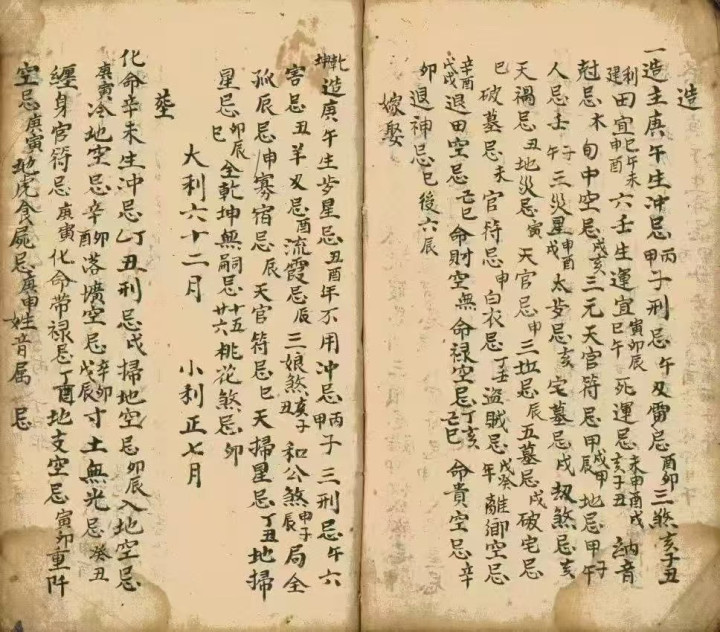 造
一造主庚午生沖忌丙甲子刑忌午双雷忌酉卯三煞亥子丑
利建田宜巳午未申酉六壬生運宜寅卯辰巳午死運忌未申酉戌亥子丑納音
尅忌木旬中空忌戌亥三元天官符忌甲辰戌甲地忌甲午子
人忌壬子午三災星申酉戌太岁忌亥宅墓忌戌刼煞忌亥
天禍忌丑地災忌寅天官忌申三災忌辰五墓忌戌破宅忌
巳破墓忌未官符忌申白衣忌丁壬盜賊忌戊癸年離鄉空忌
辛酉戊戌退田空忌己巳命財空無命禄空忌丁亥己巳命貴空忌辛
卯退神忌巳後六辰
嫁娶
乾坤造庚午生岁星忌丑酉年不用沖忌丙甲子三刑忌午六
害忌丑羊刃忌酉流霞忌辰三娘煞亥子丑和公煞甲子辰局全
孤辰忌申寡宿忌辰天官符忌巳天掃星忌丁丑地掃
星忌卯辰巳全乾坤無嗣忌十五廿六桃花煞忌卯
大利六十二月 小利正七月
塟
化命辛未生沖忌乙丁丑刑忌戌掃地空忌卯辰入地空忌
庚寅冷地空忌辛卯酉落壙空忌辛卯戊辰寸土無光忌癸丑
纏身官符忌庚寅化命帶禄忌丁酉地支空忌寅卯重阡
空忌庚寅地虎食屍忌庚申姓音屬 忌